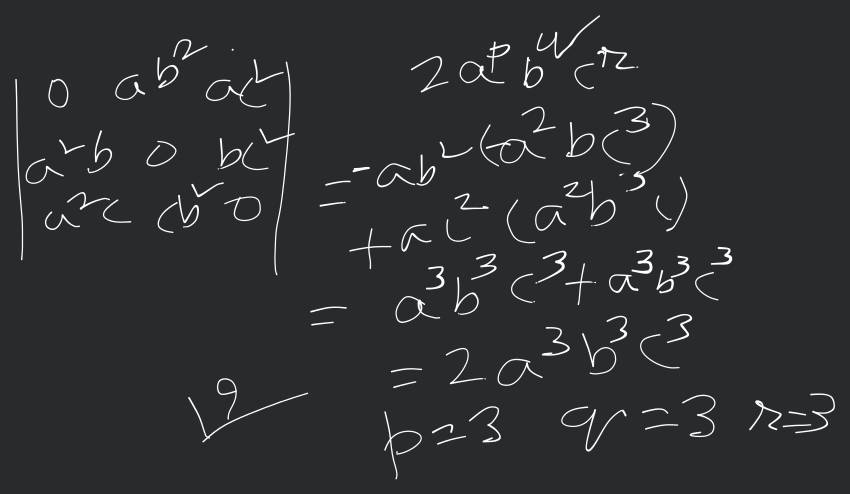 | 0 ab² ac² |
| a²b 0 bc² |
| a²c cb² 0 |
2a^p b^q c^r
= -ab² (-a²bc³)
+ ac² (a²b³c)
= a³b³c³ + a³b³c³
= 2a³b³c³
p=3 q=3 r=3
9